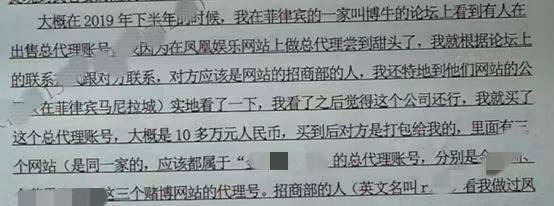 大概在 2019 年下半年的时候，我在菲律宾的一家叫博牛的论坛上看到有人在
出售总代理账号，因为在凤凰娱乐网站上做总代理尝到甜头了，我就根据论坛上
的联系 跟对方联系，对方应该是网站的招商部的人，我还特地到他们网站的公
在菲律宾马尼拉城）实地看了一下，我看了之后觉得这个公司还行，我就买了
这个总代理账号，大概是 10 多万元人民币，买到后对方是打包给我的，里面有三
个网站（是同一家的，应该都属于“ 的总代理账号，分别是
这三个赌博网站的代理号。招商部的人（英文名叫 r 看我做过凤